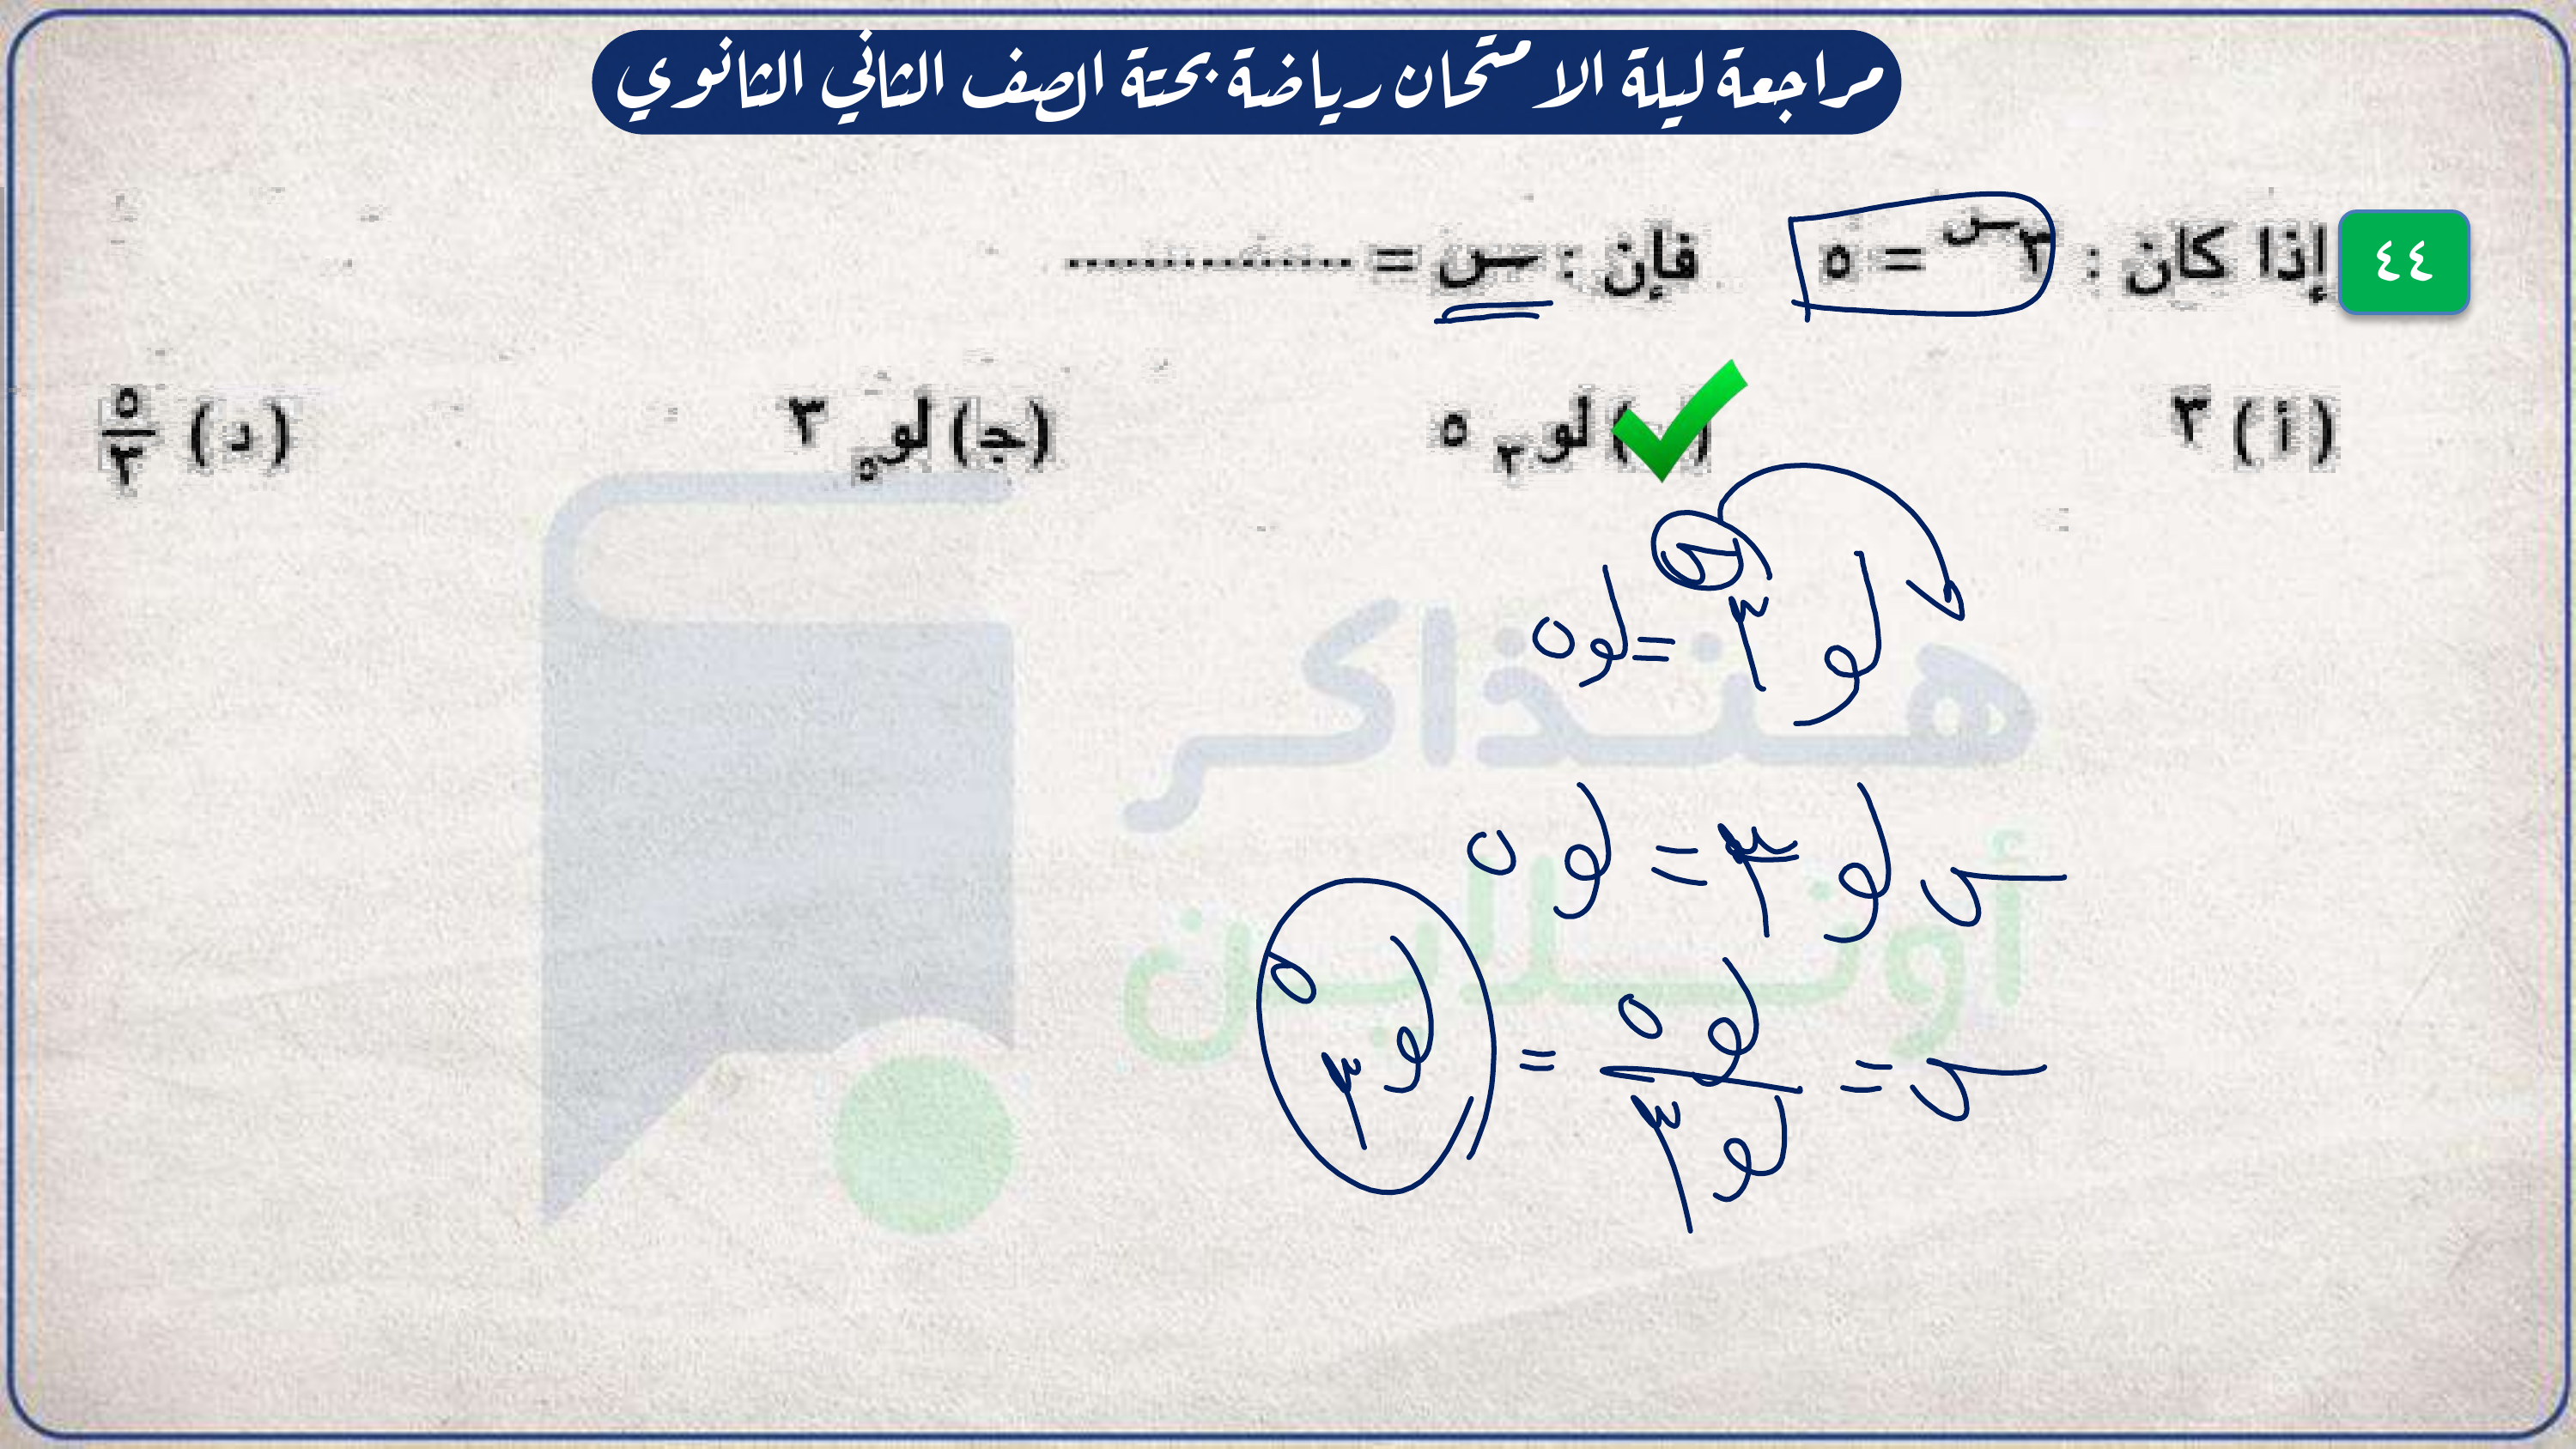 مراجعة ليلة الامتحان رياضة بحتة الصف الثاني الثانوي
٤٤ إذا كان : ٣س = ٥ فإن : س = ..............
(أ) ٣ ( ) لو٣ ٥ (ج) لو٥ ٣ (د) ٥/٣
لو ٣س = لو ٥
س لو ٣ = لو ٥
س = لو ٥ / لو ٣ = لو٣ ٥
هنذاكر
أونلاين